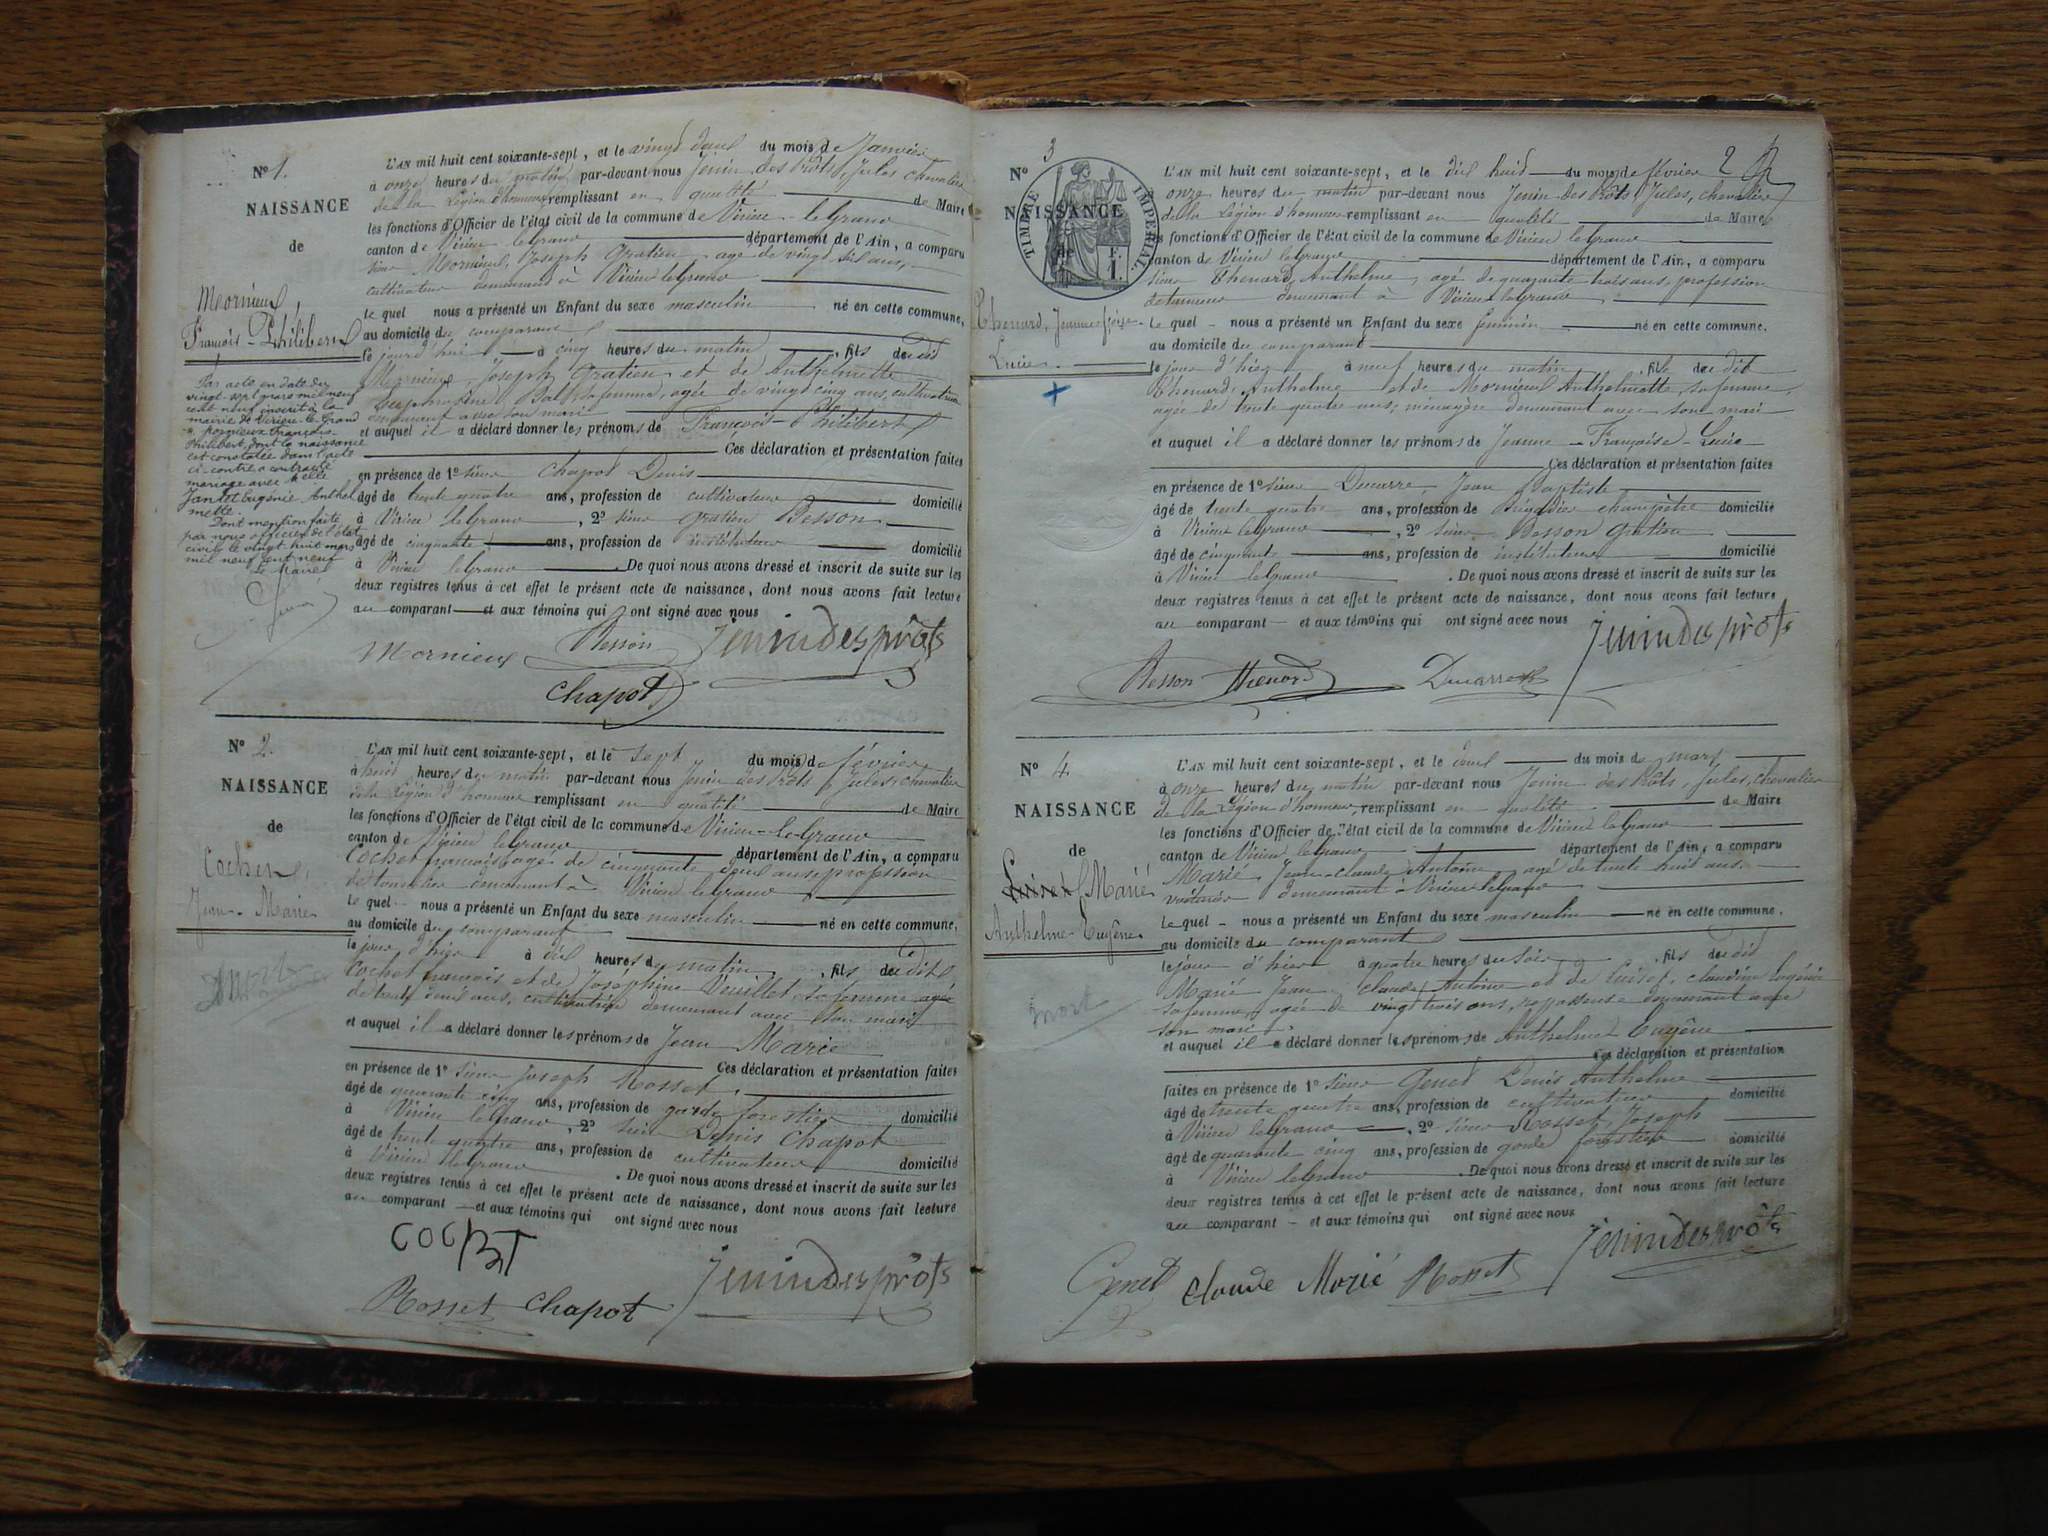 N° 1.
NAISSANCE
de
Mornieux,
François-Philibert
L'AN mil huit cent soixante-sept, et le vingt deux du mois de Janvier
à onze heures du matin par-devant nous Jenin des Prôts, Jules, chevalier
de la Légion d'honneur remplissant en qualité de Maire
les fonctions d'Officier de l'état civil de la commune de Virieu-le-Grand
canton de Virieu le grand département de l'Ain, a comparu
sieur Mornieux, Joseph Gratien agé de vingt six ans,
cultivateur demeurant à Virieu le grand
le quel nous a présenté un Enfant du sexe masculin né en cette commune,
au domicile du comparant
le jourd'hui à cinq heures du matin, fils du dit
Mornieux, Joseph Gratien et de Anthelmette
sa femme, agée de vingt cinq ans, cultivatrice
demeurant avec son mari
et auquel il a déclaré donner les prénoms de François-Philibert
Ces déclaration et présentation faites
en présence de 1° sieur Chapot Denis
âgé de trente quatre ans, profession de cultivateur domicilié
à Virieu le grand, 2° sieur Gratien Besson
âgé de cinquante ans, profession de instituteur domicilié
à Virieu le grand. De quoi nous avons dressé et inscrit de suite sur les
deux registres tenus à cet effet le présent acte de naissance, dont nous avons fait lecture
au comparant et aux témoins qui ont signé avec nous
Mornieux Besson Jenin des prôts
Chapot
Par acte en date du
vingt sept mars mil neuf
cent neuf inscrit à la
mairie de Virieu-le-Grand
Mornieux François
Philibert, dont la naissance
est constatée dans l'acte
ci-contre a contracté
mariage avec Melle
Jantet Eugénie Anthel
mette.
Dont mention faite
par nous officier de l'état
civil le vingt huit mars
mil neuf cent neuf
Le Maire
N° 2.
NAISSANCE
de
Cochet,
Jean-Marie
Mort
L'AN mil huit cent soixante-sept, et le sept du mois de février
à huit heures du matin par-devant nous Jenin des Prôts, Jules, chevalier
de la Légion d'honneur remplissant en qualité de Maire
les fonctions d'Officier de l'état civil de la commune de Virieu-le-Grand
canton de Virieu le grand département de l'Ain, a comparu
Cochet françois agé de cinquante deux ans profession
de tonnelier demeurant à Virieu le grand
le quel nous a présenté un Enfant du sexe masculin né en cette commune,
au domicile du comparant
le jour d'hier à dix heures du matin, fils du dit
Cochet françois et de Joséphine Vuillet, sa femme agée
de trente deux ans, cultivatrice demeurant avec son mari
et auquel il a déclaré donner les prénoms de Jean Marie
Ces déclaration et présentation faites
en présence de 1° sieur Joseph Rosset,
âgé de quarante cinq ans, profession de garde forestier domicilié
à Virieu le grand, 2° sieur Denis Chapot
âgé de trente quatre ans, profession de cultivateur domicilié
à Virieu le grand. De quoi nous avons dressé et inscrit de suite sur les
deux registres tenus à cet effet le présent acte de naissance, dont nous avons fait lecture
au comparant et aux témoins qui ont signé avec nous
COCHET
Rosset Chapot Jenin des prôts
2
N° 3
NAISSANCE
de
TIMBRE IMPERIAL
1 F.
Thenard, Jeanne frçoise-
Lucie
L'AN mil huit cent soixante-sept, et le dix huit du mois de février
onze heures du matin par-devant nous Jenin des Prôts, Jules, chevalier
de la Légion d'honneur remplissant en qualité de Maire
les fonctions d'Officier de l'état civil de la commune de Virieu le grand
canton de Virieu le grand département de l'Ain, a comparu
sieur Thenard, Anthelme, agé de quarante trois ans, profession
de tanneur demeurant à Virieu le grand
le quel nous a présenté un Enfant du sexe féminin né en cette commune.
au domicile du comparant
le jour d'hier à neuf heures du matin, fille du dit
Thenard, Anthelme et de Mornieux Anthelmette, sa femme,
agée de trente quatre ans, ménagère demeurant avec son mari
et auquel il a déclaré donner les prénoms de Jeanne-Françoise-Lucie
Ces déclaration et présentation faites
en présence de 1° sieur Ducarre, Jean Baptiste
âgé de trente quatre ans, profession de Brigadier champêtre domicilié
à Virieu le grand, 2° sieur Besson Gratien
âgé de cinquante ans, profession de instituteur domicilié
à Virieu le grand. De quoi nous avons dressé et inscrit de suite sur les
deux registres tenus à cet effet le présent acte de naissance, dont nous avons fait lecture
au comparant et aux témoins qui ont signé avec nous
Besson Thenard Ducarre Jenin des prôts
N° 4
NAISSANCE
de
Marié
Anthelme-Eugène
mort
L'AN mil huit cent soixante-sept, et le deux du mois de mars
à onze heures du matin par-devant nous Jenin des Prôts, Jules, chevalier
de la Légion d'honneur, remplissant en qualité de Maire
les fonctions d'Officier de l'état civil de la commune de Virieu le grand
canton de Virieu le grand département de l'Ain, a comparu
Marié, Jean-Claude Antoine agé de trente huit ans.
voiturier demeurant à Virieu le grand
le quel nous a présenté un Enfant du sexe masculin né en cette commune,
au domicile du comparant
le jour d'hier à quatre heures du soir, fils du dit
Marié Jean Claude Antoine et de Luiset, claudine Eugénie
sa femme, agée de vingt trois ans, repasseuse demeurant avec
son mari.
et auquel il a déclaré donner les prénoms de Anthelme Eugène
Ces déclaration et présentation
faites en présence de 1° sieur Genet Denis Anthelme
âgé de trente quatre ans, profession de cultivateur domicilié
à Virieu le grand, 2° sieur Rosset, Joseph
âgé de quarante cinq ans, profession de garde forestier domicilié
à Virieu le grand. De quoi nous avons dressé et inscrit de suite sur les
deux registres tenus à cet effet le présent acte de naissance, dont nous avons fait lecture
au comparant et aux témoins qui ont signé avec nous
Genet Claude Marié Rosset Jenin des prôts